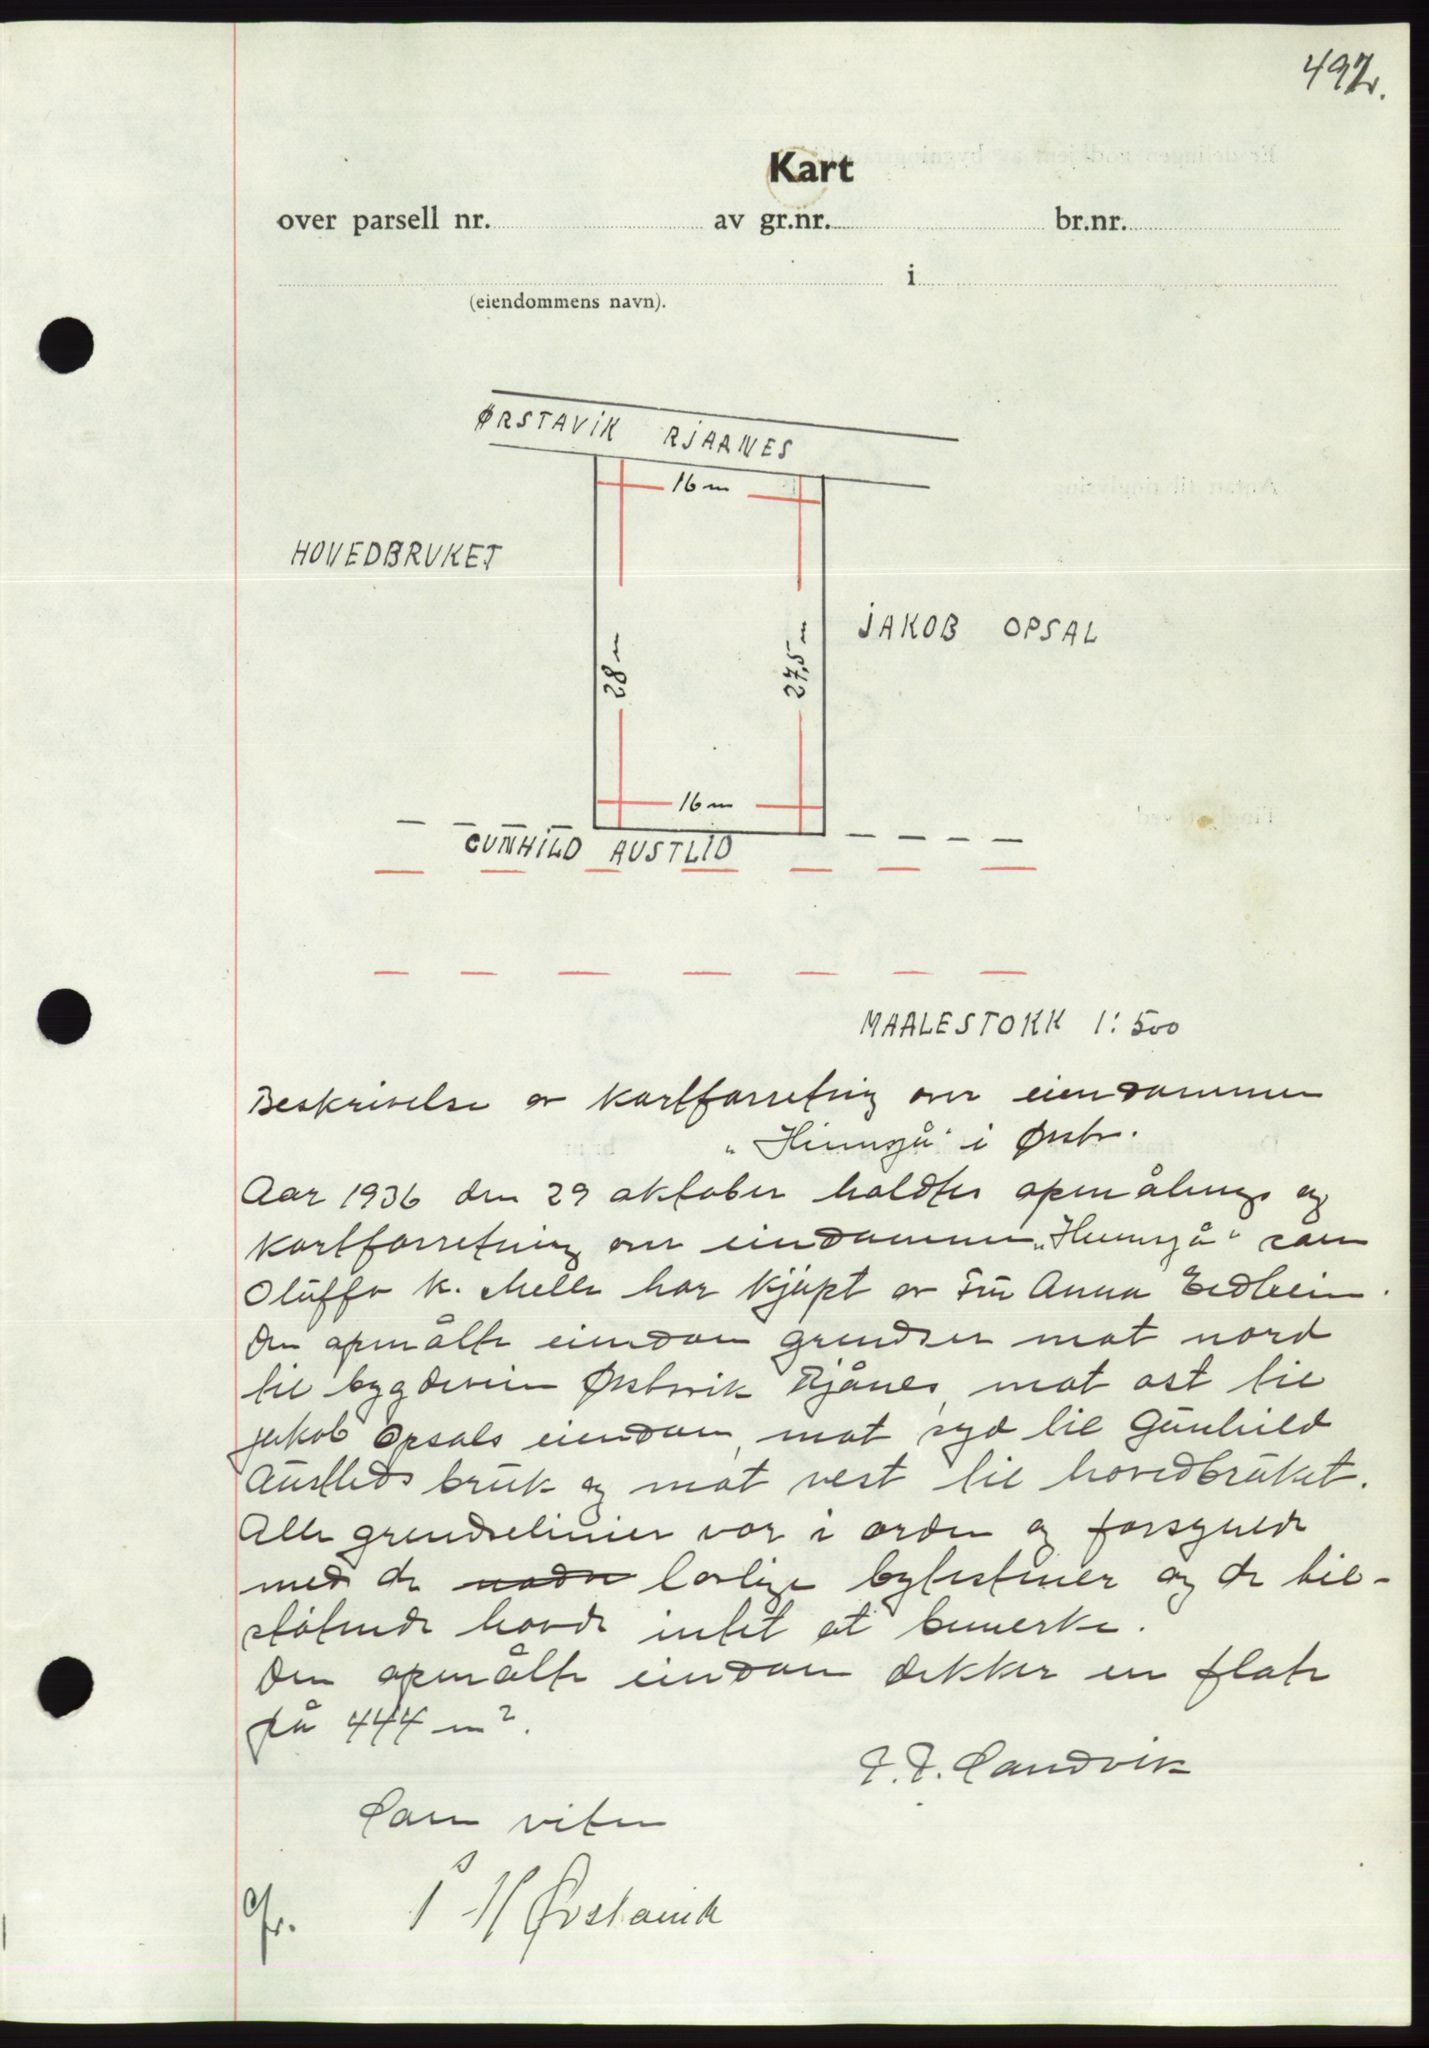 497.
Kart
over parsell nr. av gr.nr. br.nr.
i
(eiendommens navn).
ØRSTAVIK RJAANES
16 m
HOVEDBRUKET
JAKOB OPSAL
28 m
27,5 m
16 m
GUNHILD AUSTLID
MAALESTOKK 1:500
Beskrivelse av kartforretning over eiendommen
i Ørsta.
Aar 1936 den 29 oktober holdtes opmålings og
kartforretning over eiendommen som
Oluffa K. Melle har kjøpt av Frü Anna Eidheim.
Den opmålte eiendom grendser mot nord
til bygdevein Ørstavik Rjånes, mot ost til
Jakob Opsals eiendom, mot syd til Gunhild
Austlids brük og mot vest til hovedbrüket.
Alle grendselinier var i orden og forsynede
med de lovlige bytesteiner og de til-
støtende havde intet at bemerke.
Den opmålte eiendom dekker en flate
på 444 m².
J. J. Sandvik
Som viten
H Ørstavik